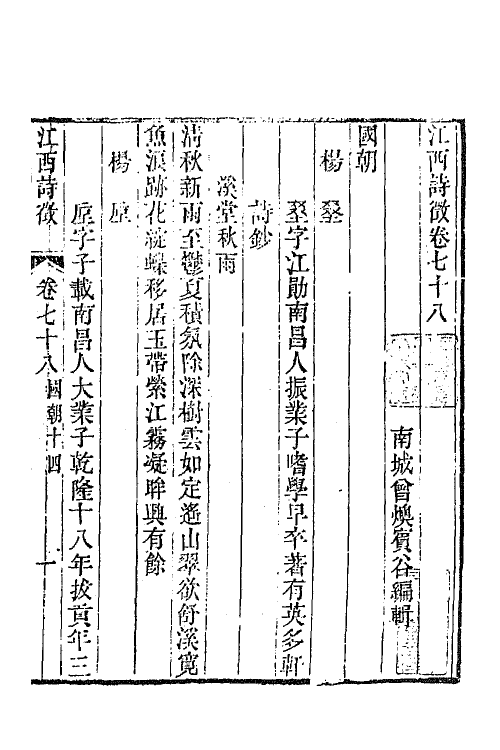 江西詩徵卷七十八
南城曾燠賓谷編輯
國朝
楊垕
垕字江勛南昌人振業子嗜學早卒著有英多軒
詩鈔
溪堂秋雨
清秋新雨至鬱夏積氛除深樹雲如定遙山翠欲舒溪寬
魚浪跡花淀蝶移居玉帶縈江霧凝眸興有餘
楊垕
垕字子載南昌人大業子乾隆十八年拔貢年三
江西詩徵 卷七十八 國朝十四 一